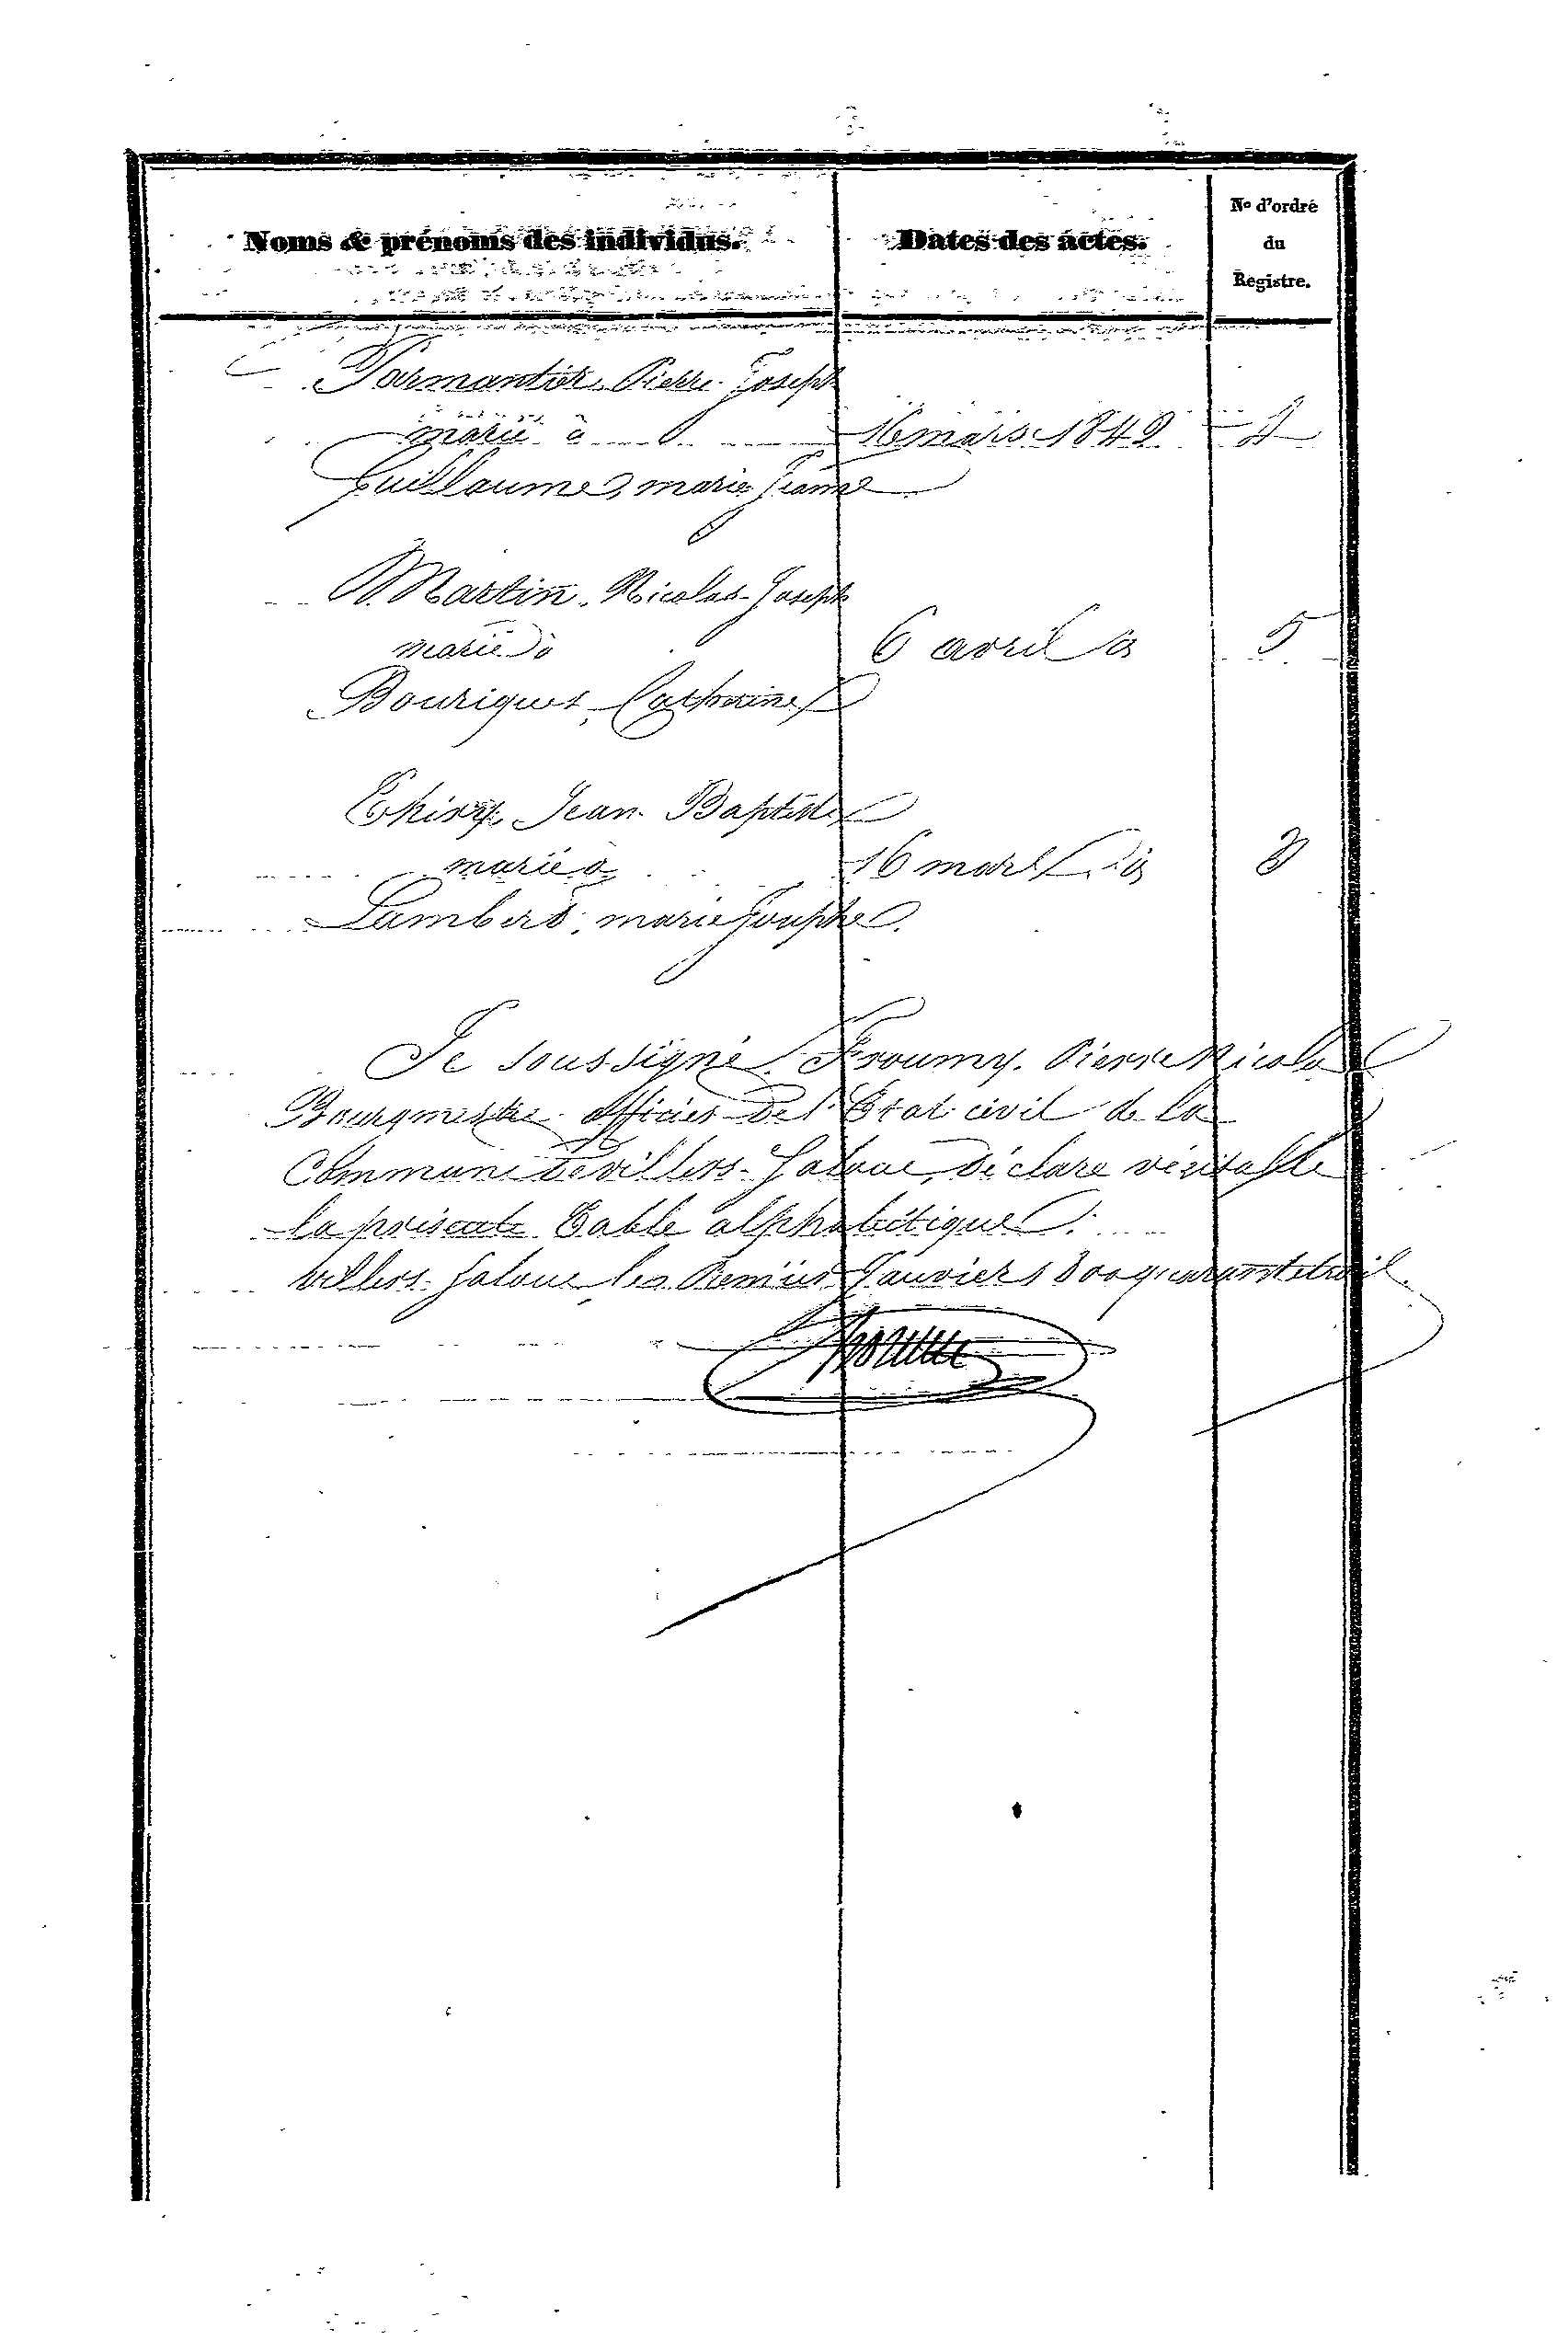 Noms & prénoms des individus.
Dates des actes.
N° d'ordre
du
Registre.
Parmantier, Pierre Joseph
marié à
16 mars 1842
Guillaume, marie Jeanne
Martin, Nicolas Joseph
marié à
6 avril
5
Catherine
Thiry, Jean Baptiste
marié à
16 mars
3
Lambert, marie Josephe
Je soussigné Froumy, Pierre Nicolas
Bourgmestre officier de l'Etat civil de la
Commune de villers-Laloue, déclare véritable
la présente Table alphabétique.
villers-Laloue les Premier Janvier 1800 quarante trois.